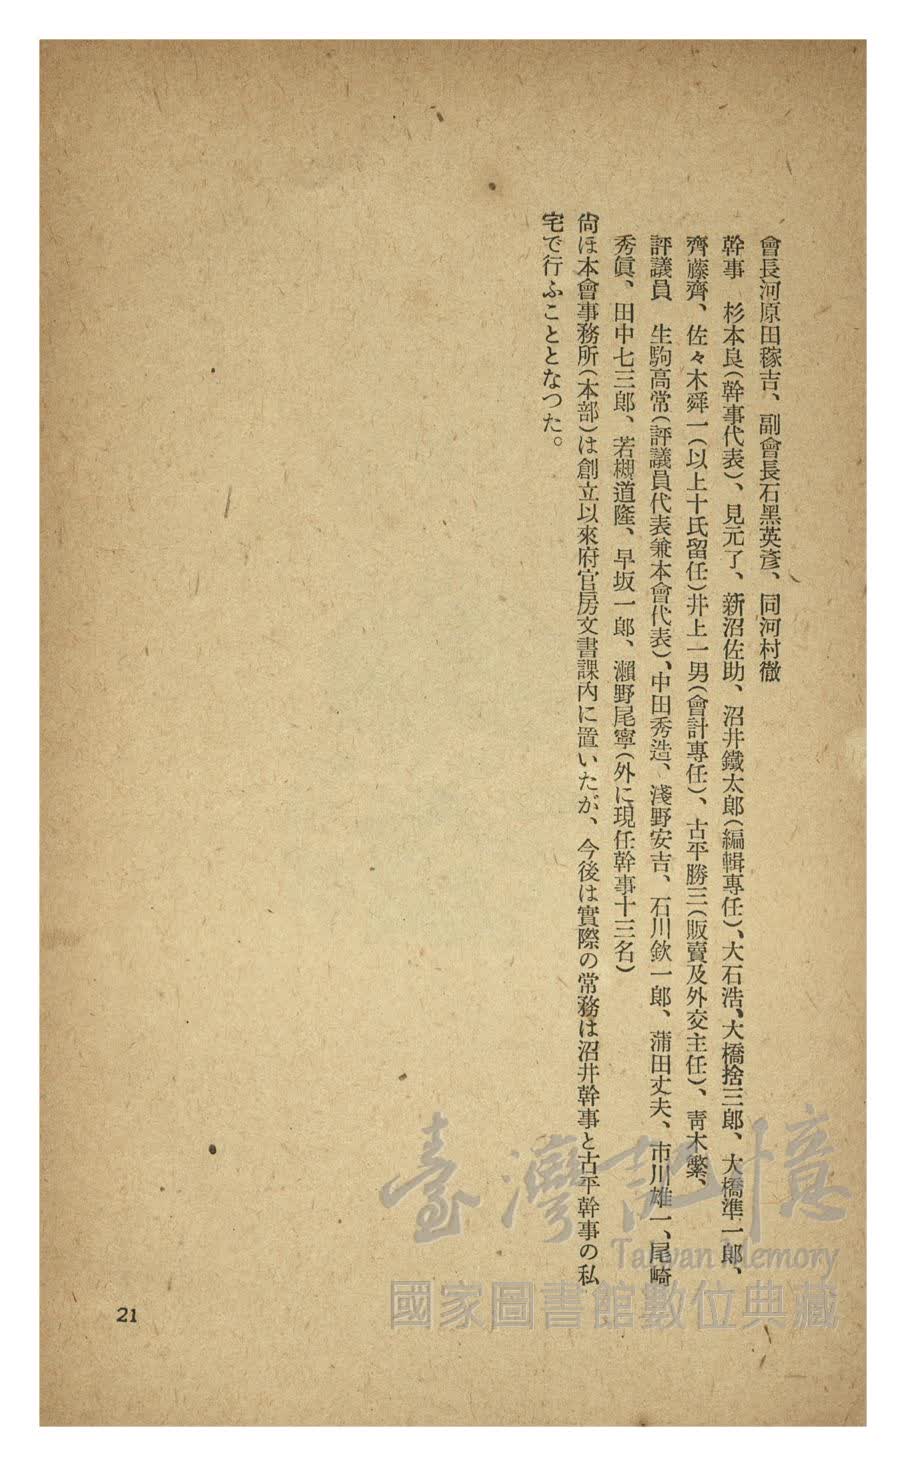 會長河原田稼吉、副會長石黑英彥、同河村徹
幹事　杉本良(幹事代表)、見元了、新沼佐助、沼井鐵太郎(編輯專任)、大石浩、大橋捨三郎、大橋準一郎、
齊藤齊、佐々木舜一(以上十氏留任)井上一男(會計專任)、古平勝三(販賣及外交主任)、靑木繁、
評議員　生駒高常(評議員代表兼本會代表)、中田秀造、淺野安吉、石川欽一郎、蒲田丈夫、市川雄一、尾崎
秀眞、田中七三郎、若槻道隆、早坂一郎、瀨野尾寧(外に現任幹事十三名)
尙ほ本會事務所(本部)は創立以來府官房文書課內に置いたが、今後は實際の常務は沼井幹事と古平幹事の私
宅で行ふこととなつた。
臺灣記憶
Taiwan Memory
國家圖書館數位典藏
21